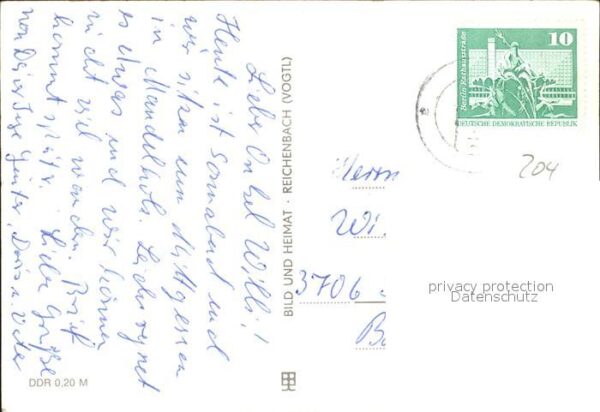 Lieber Onkel Willi!
Heute ist Sonnabend und
wir sitzen zum Mittagessen
in Mandelholz. Leider regnet
es etwas und wir können
nicht viel wandern. Brief
kommt später. Liebe Grüße
von Deiner Inge, Günter, Doris u. Ute
DDR 0,20 M
BILD UND HEIMAT · REICHENBACH (VOGTL)
10
Berlin, Rathausstraße
DEUTSCHE DEMOKRATISCHE REPUBLIK
204
Herrn
Wi
3706
B
privacy protection
Datenschutz